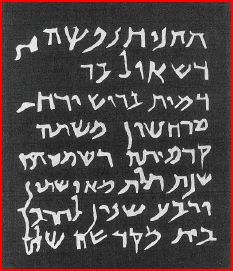 תתנית נפשה
דשאול בר
דמית בריש ירח
מרחשון משתה
קדמיתה דשמטתה
שנת תלת מאה ושתין
ורבע שנין לחרבן
בית מקדשה